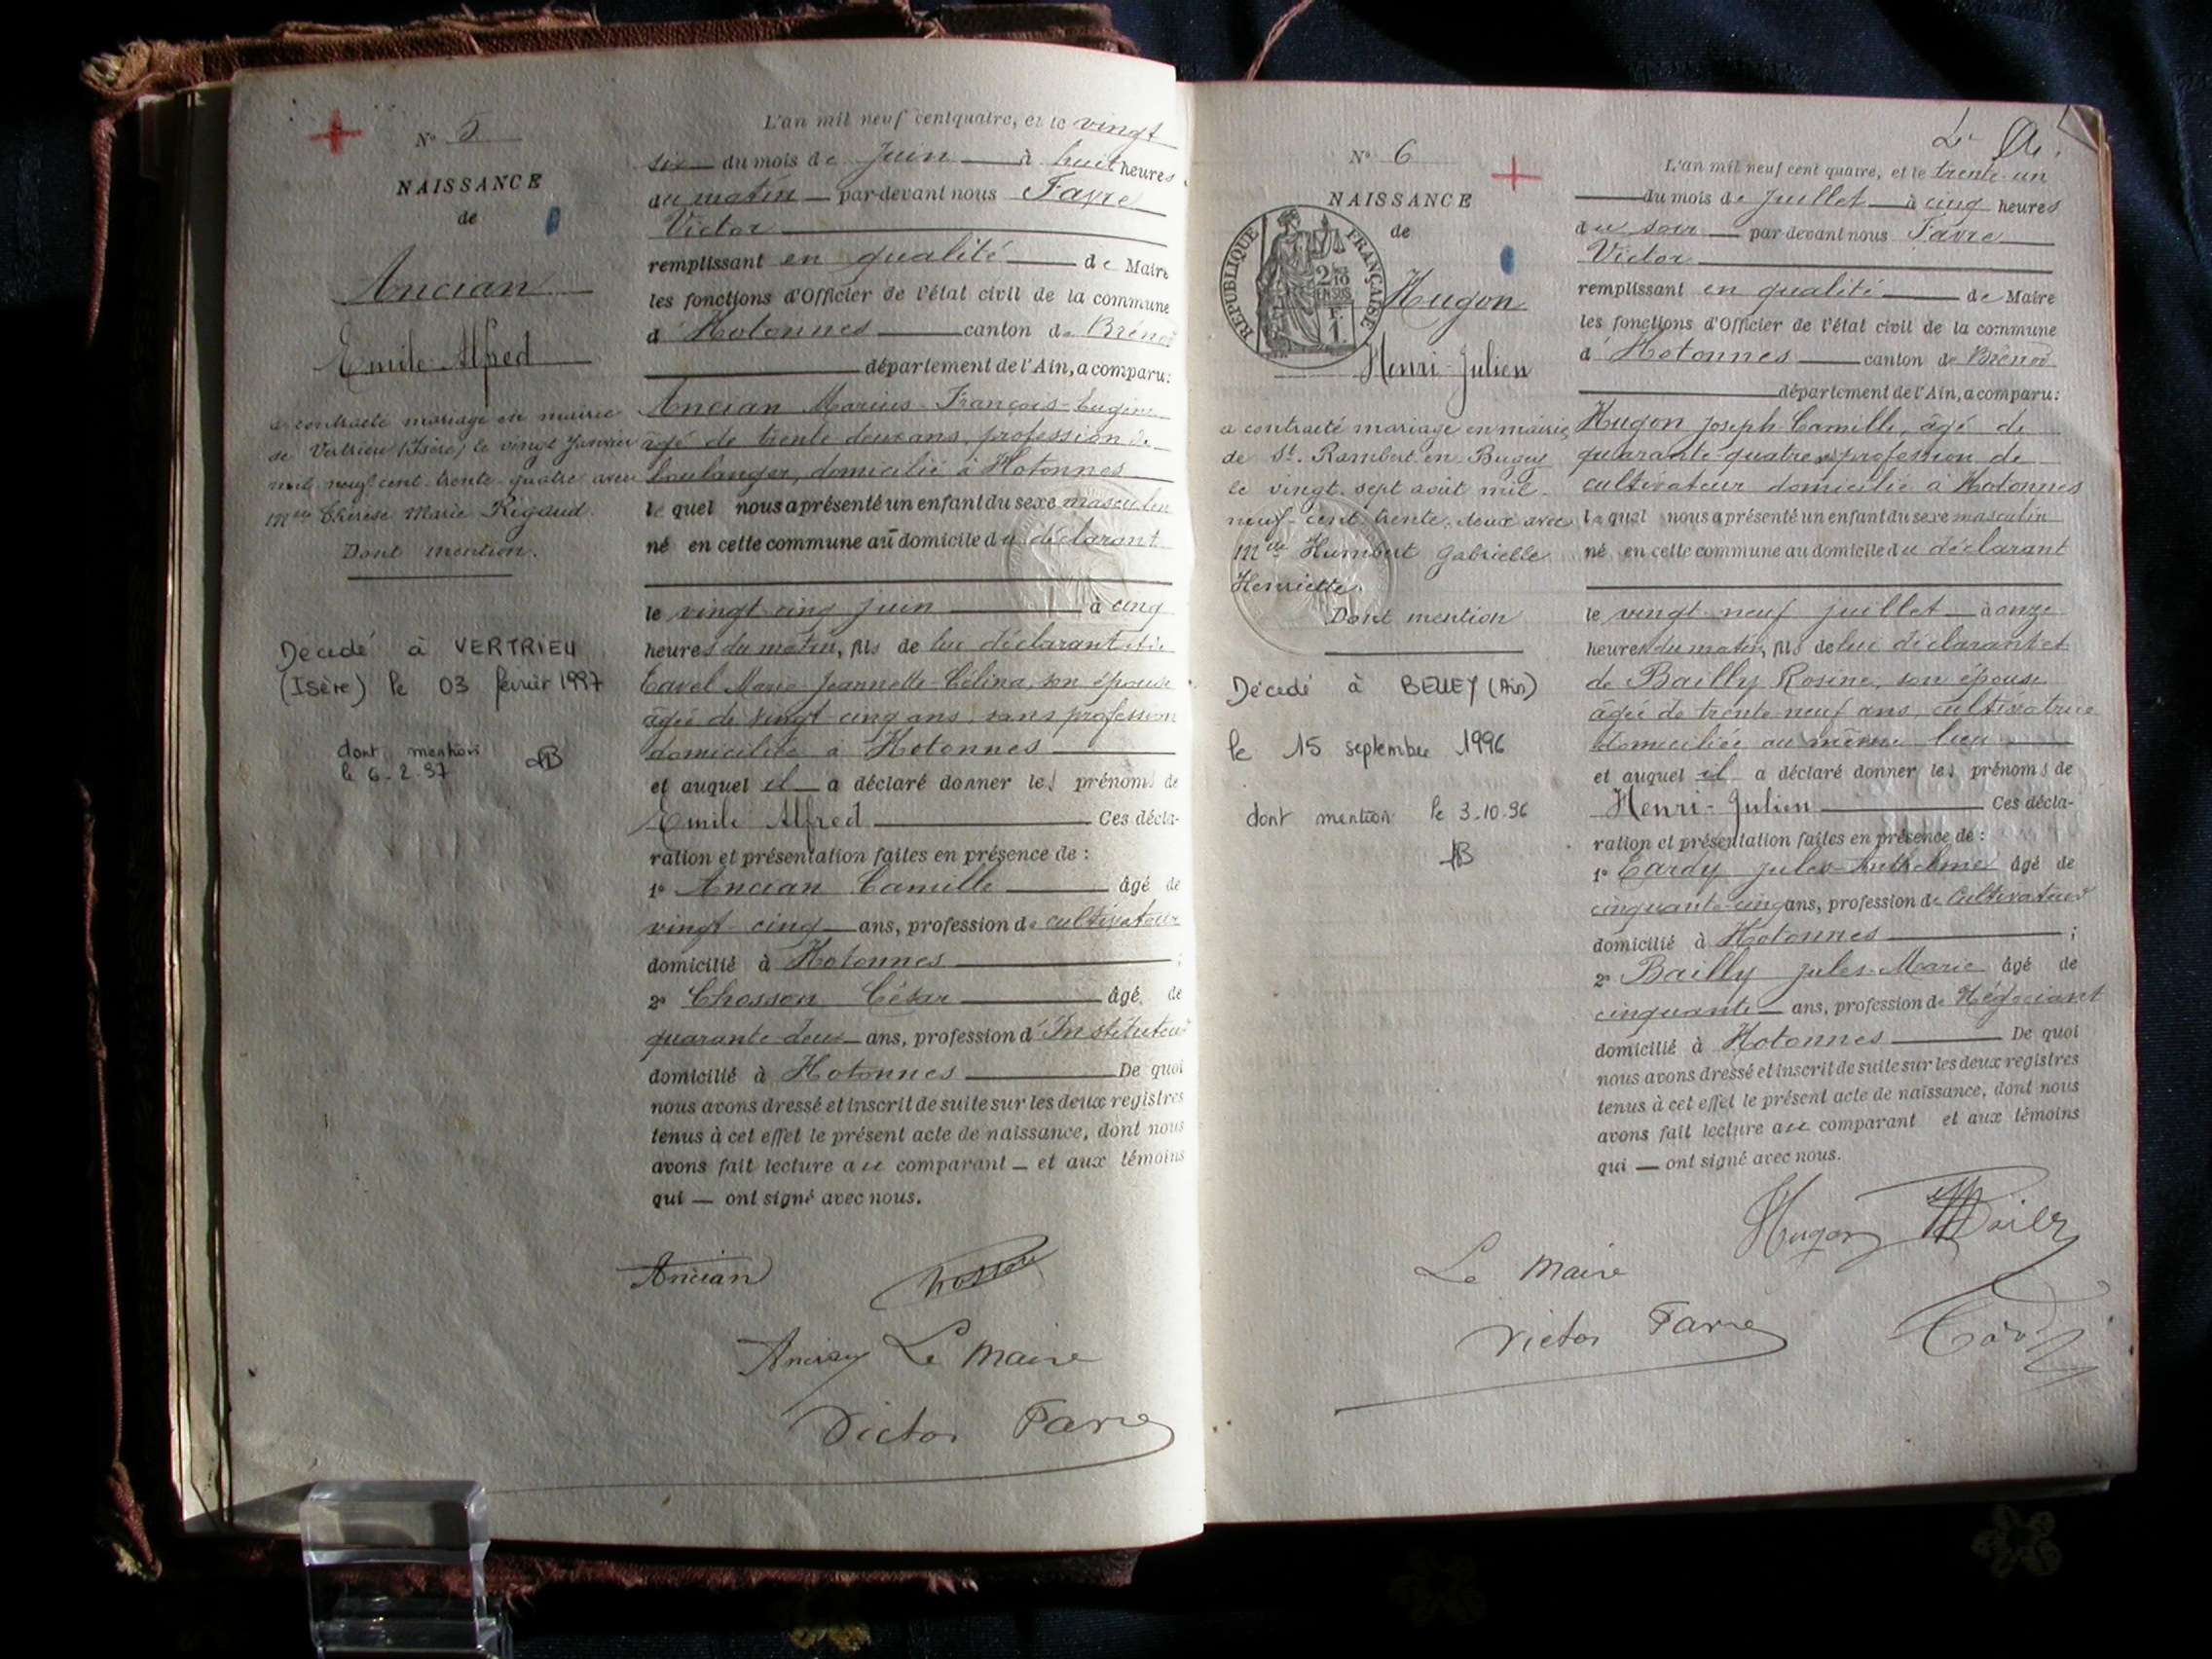 N° 5
NAISSANCE
de
Ancian
Emile Alfred
a contracté mariage en mairie
de Vertrieu (Isère) le vingt Janvier
mil neuf cent trente quatre avec
Mlle Thérèse Marie Rigaud.
Dont mention.
Décédé à VERTRIEU
(Isère) le 03 février 1997
dont mention
le 6-2-97
L'an mil neuf cent quatre, et le vingt
six du mois de Juin à huit heures
du matin par-devant nous Favre
Victor
remplissant en qualité de Maire
les fonctions d'Officier de l'état civil de la commune
d'Hotonnes canton de Brénod
département de l'Ain, a comparu:
Ancian Marius-François-Eugène
âgé de trente deux ans, profession de
boulanger, domicilié à Hotonnes
le quel nous a présenté un enfant du sexe masculin
né en cette commune au domicile du déclarant
le vingt cinq juin à cinq
heures du matin, fils de lui déclarant et de
Tavel Marie-Jeannette-Célina, son épouse
âgée de vingt-cinq ans, sans profession
domiciliée à Hotonnes
et auquel il a déclaré donner les prénoms de
Emile Alfred Ces décla-
ration et présentation faites en présence de :
1° Ancian Camille âgé de
vingt-cinq ans, profession de cultivateur
domicilié à Hotonnes ;
2° Chosson César âgé de
quarante-deux ans, profession d'Instituteur
domicilié à Hotonnes De quoi
nous avons dressé et inscrit de suite sur les deux registres
tenus à cet effet le présent acte de naissance, dont nous
avons fait lecture au comparant et aux témoins
qui ont signé avec nous.
Ancian Chosson
Ancian Le Maire
Victor Favre
N° 6
NAISSANCE
de
RÉPUBLIQUE FRANÇAISE
2/10
EN SUS
F.
1
Hugon
Henri-Julien
a contracté mariage en mairie
de St. Rambert en Bugey
le vingt-sept août mil
neuf-cent trente-deux avec
Mlle Humbert Gabrielle
Henriette.
Dont mention
Décédé à BELLEY (Ain)
le 15 septembre 1996
dont mention le 3.10.96
L'an mil neuf cent quatre, et le trente-un
du mois de Juillet à cinq heures
du soir par-devant nous Favre
Victor
remplissant en qualité de Maire
les fonctions d'Officier de l'état civil de la commune
d'Hotonnes canton de Brénod
département de l'Ain, a comparu:
Hugon Joseph Camille, âgé de
quarante quatre ans, profession de
cultivateur domicilié à Hotonnes
le quel nous a présenté un enfant du sexe masculin
né en cette commune au domicile du déclarant
le vingt-neuf juillet à onze
heures du matin, fils de lui déclarant et
de Bailly Rosine, son épouse
âgée de trente-neuf ans, cultivatrice
domiciliée au même lieu
et auquel il a déclaré donner les prénoms de
Henri-Julien Ces décla-
ration et présentation faites en présence de :
1° Tardy Jules-Anthelme âgé de
cinquante-cinq ans, profession de Cultivateur
domicilié à Hotonnes ;
2° Bailly Jules-Marie âgé de
cinquante ans, profession de Négociant
domicilié à Hotonnes De quoi
nous avons dressé et inscrit de suite sur les deux registres
tenus à cet effet le présent acte de naissance, dont nous
avons fait lecture au comparant et aux témoins
qui ont signé avec nous.
Hugon
Le Maire
Victor Favre